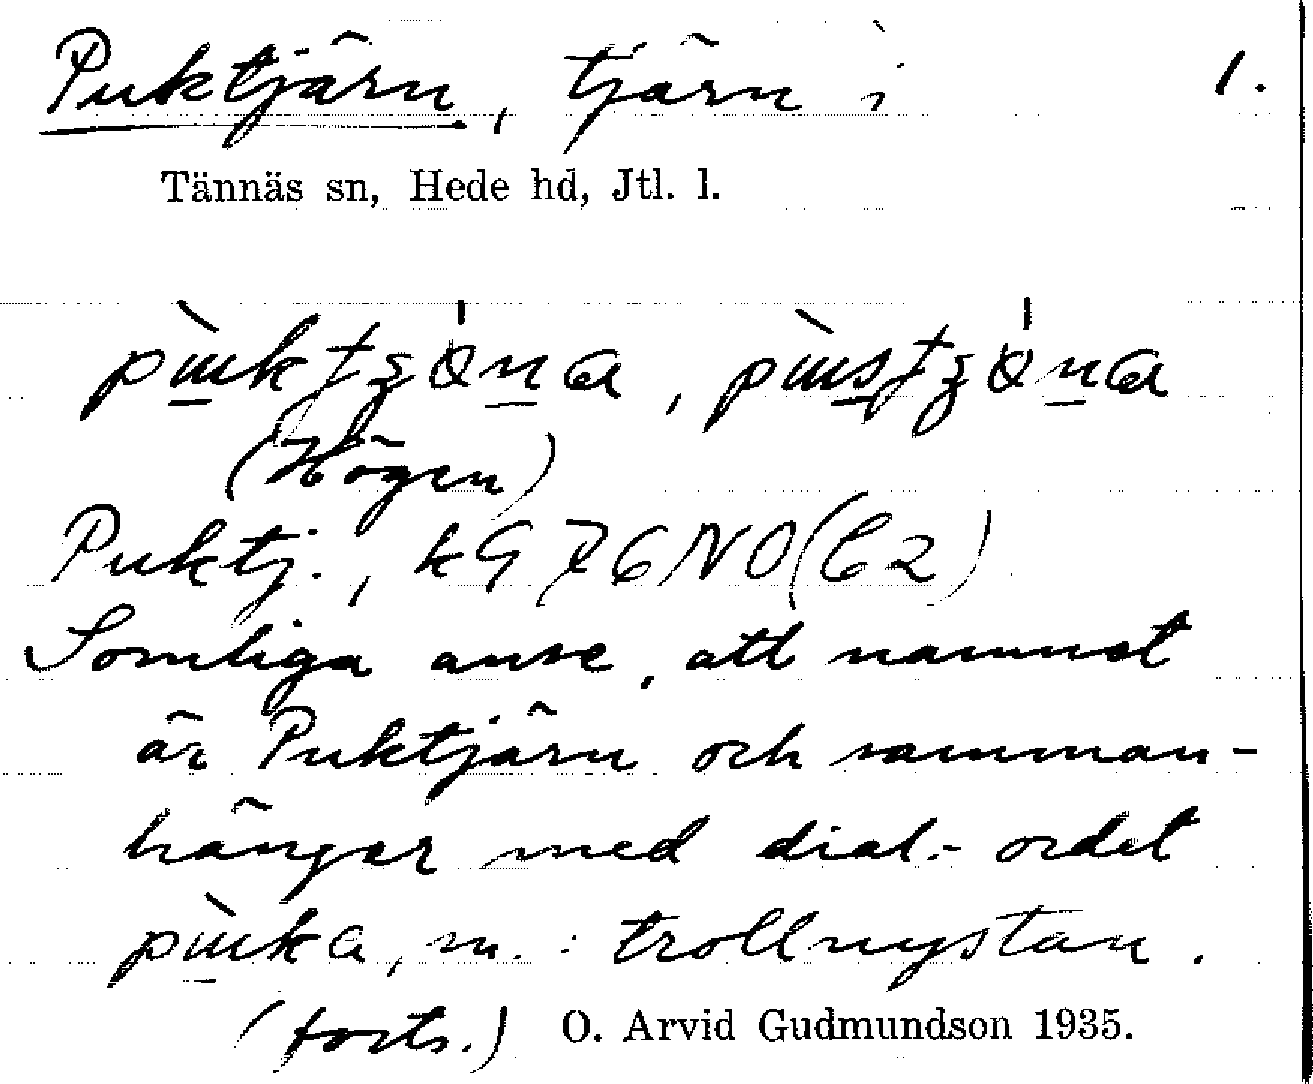 Puktjärn, tjärn i 1.
Tännäs sn, Hede hd, Jtl. l.
(Högen)
Puktj., kG 76 NO (C2)
Somliga anse, att namnet
är Puktjärn och samman-
hänger med dial.-ordet
m.: trollnystan.
(forts.) O. Arvid Gudmundson 1935.